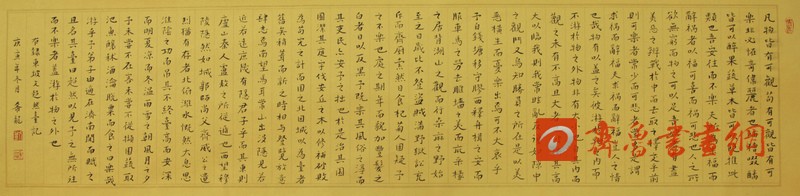 凡物皆有可觀苟有可觀皆有可
樂非必怪奇偉麗者也餔糟啜醨
皆可以醉果蔬草木皆可以飽推此
類也吾安往而不樂夫所為求福而
辭禍者以福可喜而禍可悲也人之所
欲無窮而物之可以足吾欲者有盡
美惡之辨戰乎中而去取之擇交乎前
則可樂者常少而可悲者常多是謂
求禍而辭福夫求禍而辭福豈人之情
也哉物有以蓋之矣彼游於物之內而
不游於物之外物非有大小也自其內而
觀之未有不高且大者也彼挾其高
大以臨我則我常眩亂反覆如隙中
之觀鬥又烏知勝負之所在是以美
惡橫生而憂樂出焉可不大哀乎
予自錢塘移守膠西釋舟楫之安而
服車馬之勞去雕牆之美而蔽采椽
之居背湖山之觀而行桑麻之野始
至之日歲比不登盜賊滿野獄訟充
斥而齋廚索然日食杞菊人固疑予
之不樂也處之期年而貌加豐髮之
白者日以反黑予既樂其風俗之淳而
其吏民亦安予之拙也於是治其園
囿潔其庭宇伐安丘之木以修補破敗
為苟完之計而園之北因城以為臺者
舊矣稍葺而新之時相與登覽放意
肆志焉南望馬耳常山出沒隱見若
近若遠庶幾有隱君子乎而其東則
廬山秦人盧敖之所從遁也西望穆
陵隱然如城郭師尚父齊威公之遺
烈猶有存者北俯濰水慨然太息思
淮陰之功而弔其不終臺高而安深
而明夏涼而冬溫雨雪之朝風月之夕
予未嘗不在客未嘗不從擷園蔬取
池魚釀秫酒瀹脫粟而食之曰樂哉
游乎予弟子由適在濟南聞而賦之
且名其臺曰超然以見予之無所往
而不樂者蓋游於物之外也
右錄東坡文超然臺記